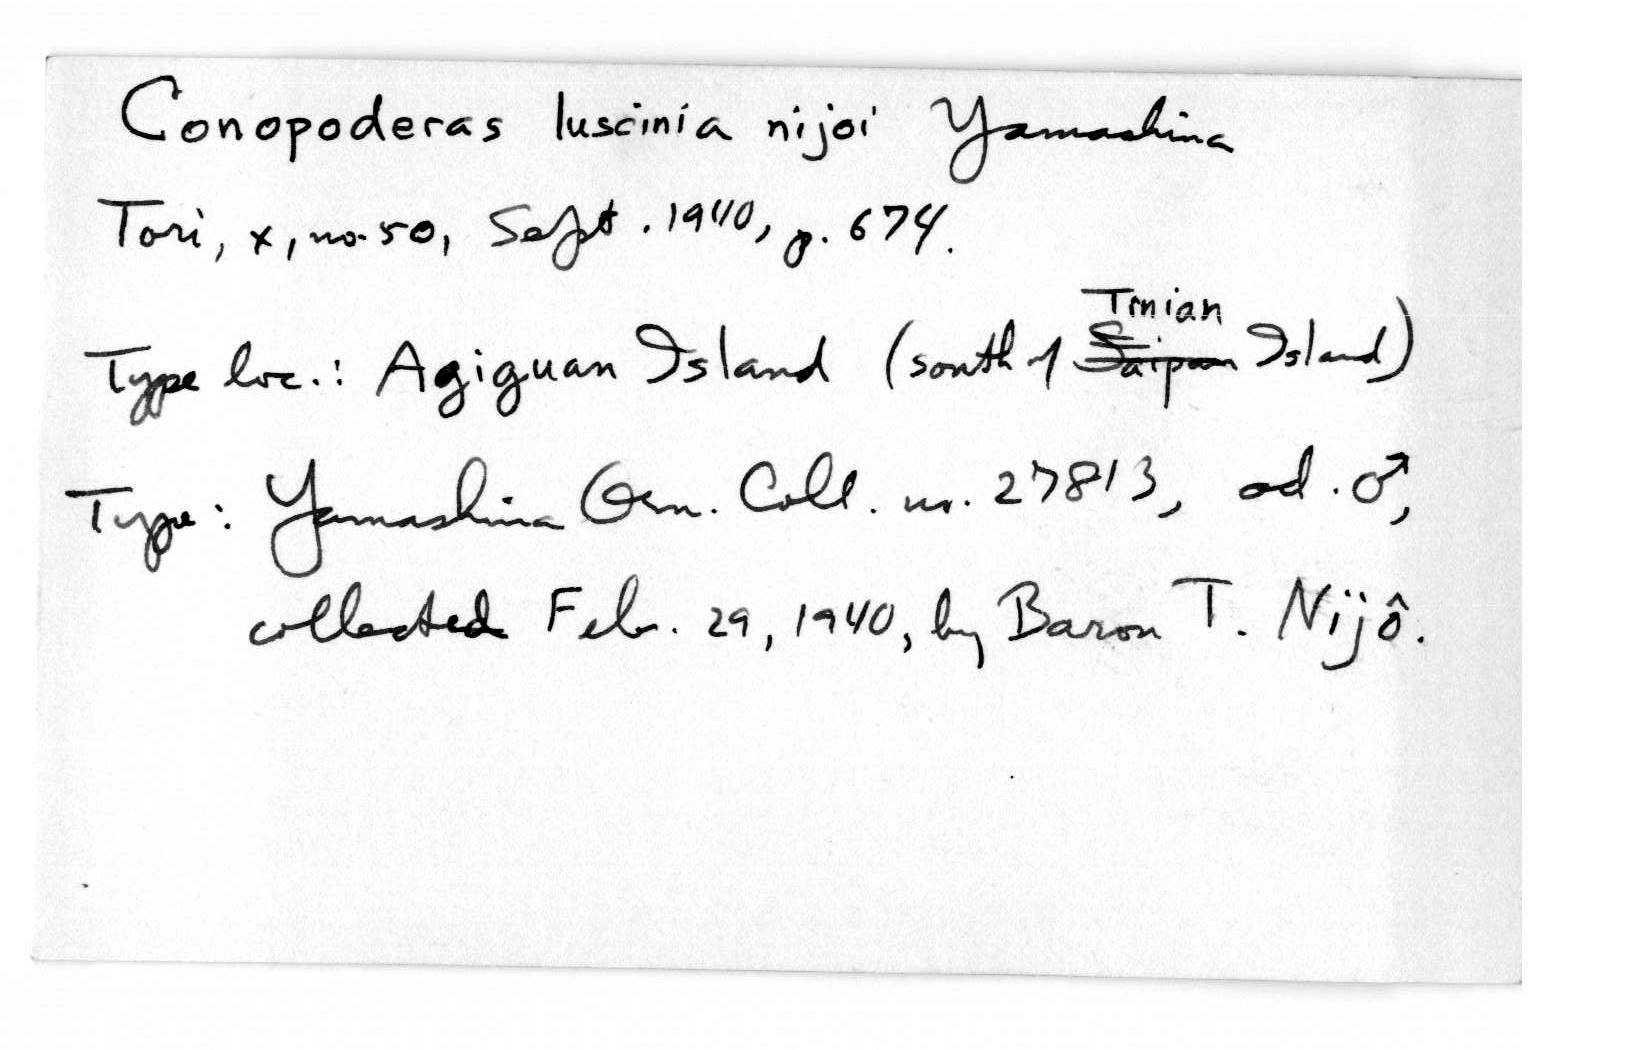 Conopoderas luscinia nijoi Yamashina
Tori, x, no. 50, Sept. 1940, p. 674.
Type loc.: Agiguan Island (south of Tinian Saipan Island)
Type: Yamashina Orn. Coll. no. 27813, ad. ♂,
collected Feb. 29, 1940, by Baron T. Nijô.